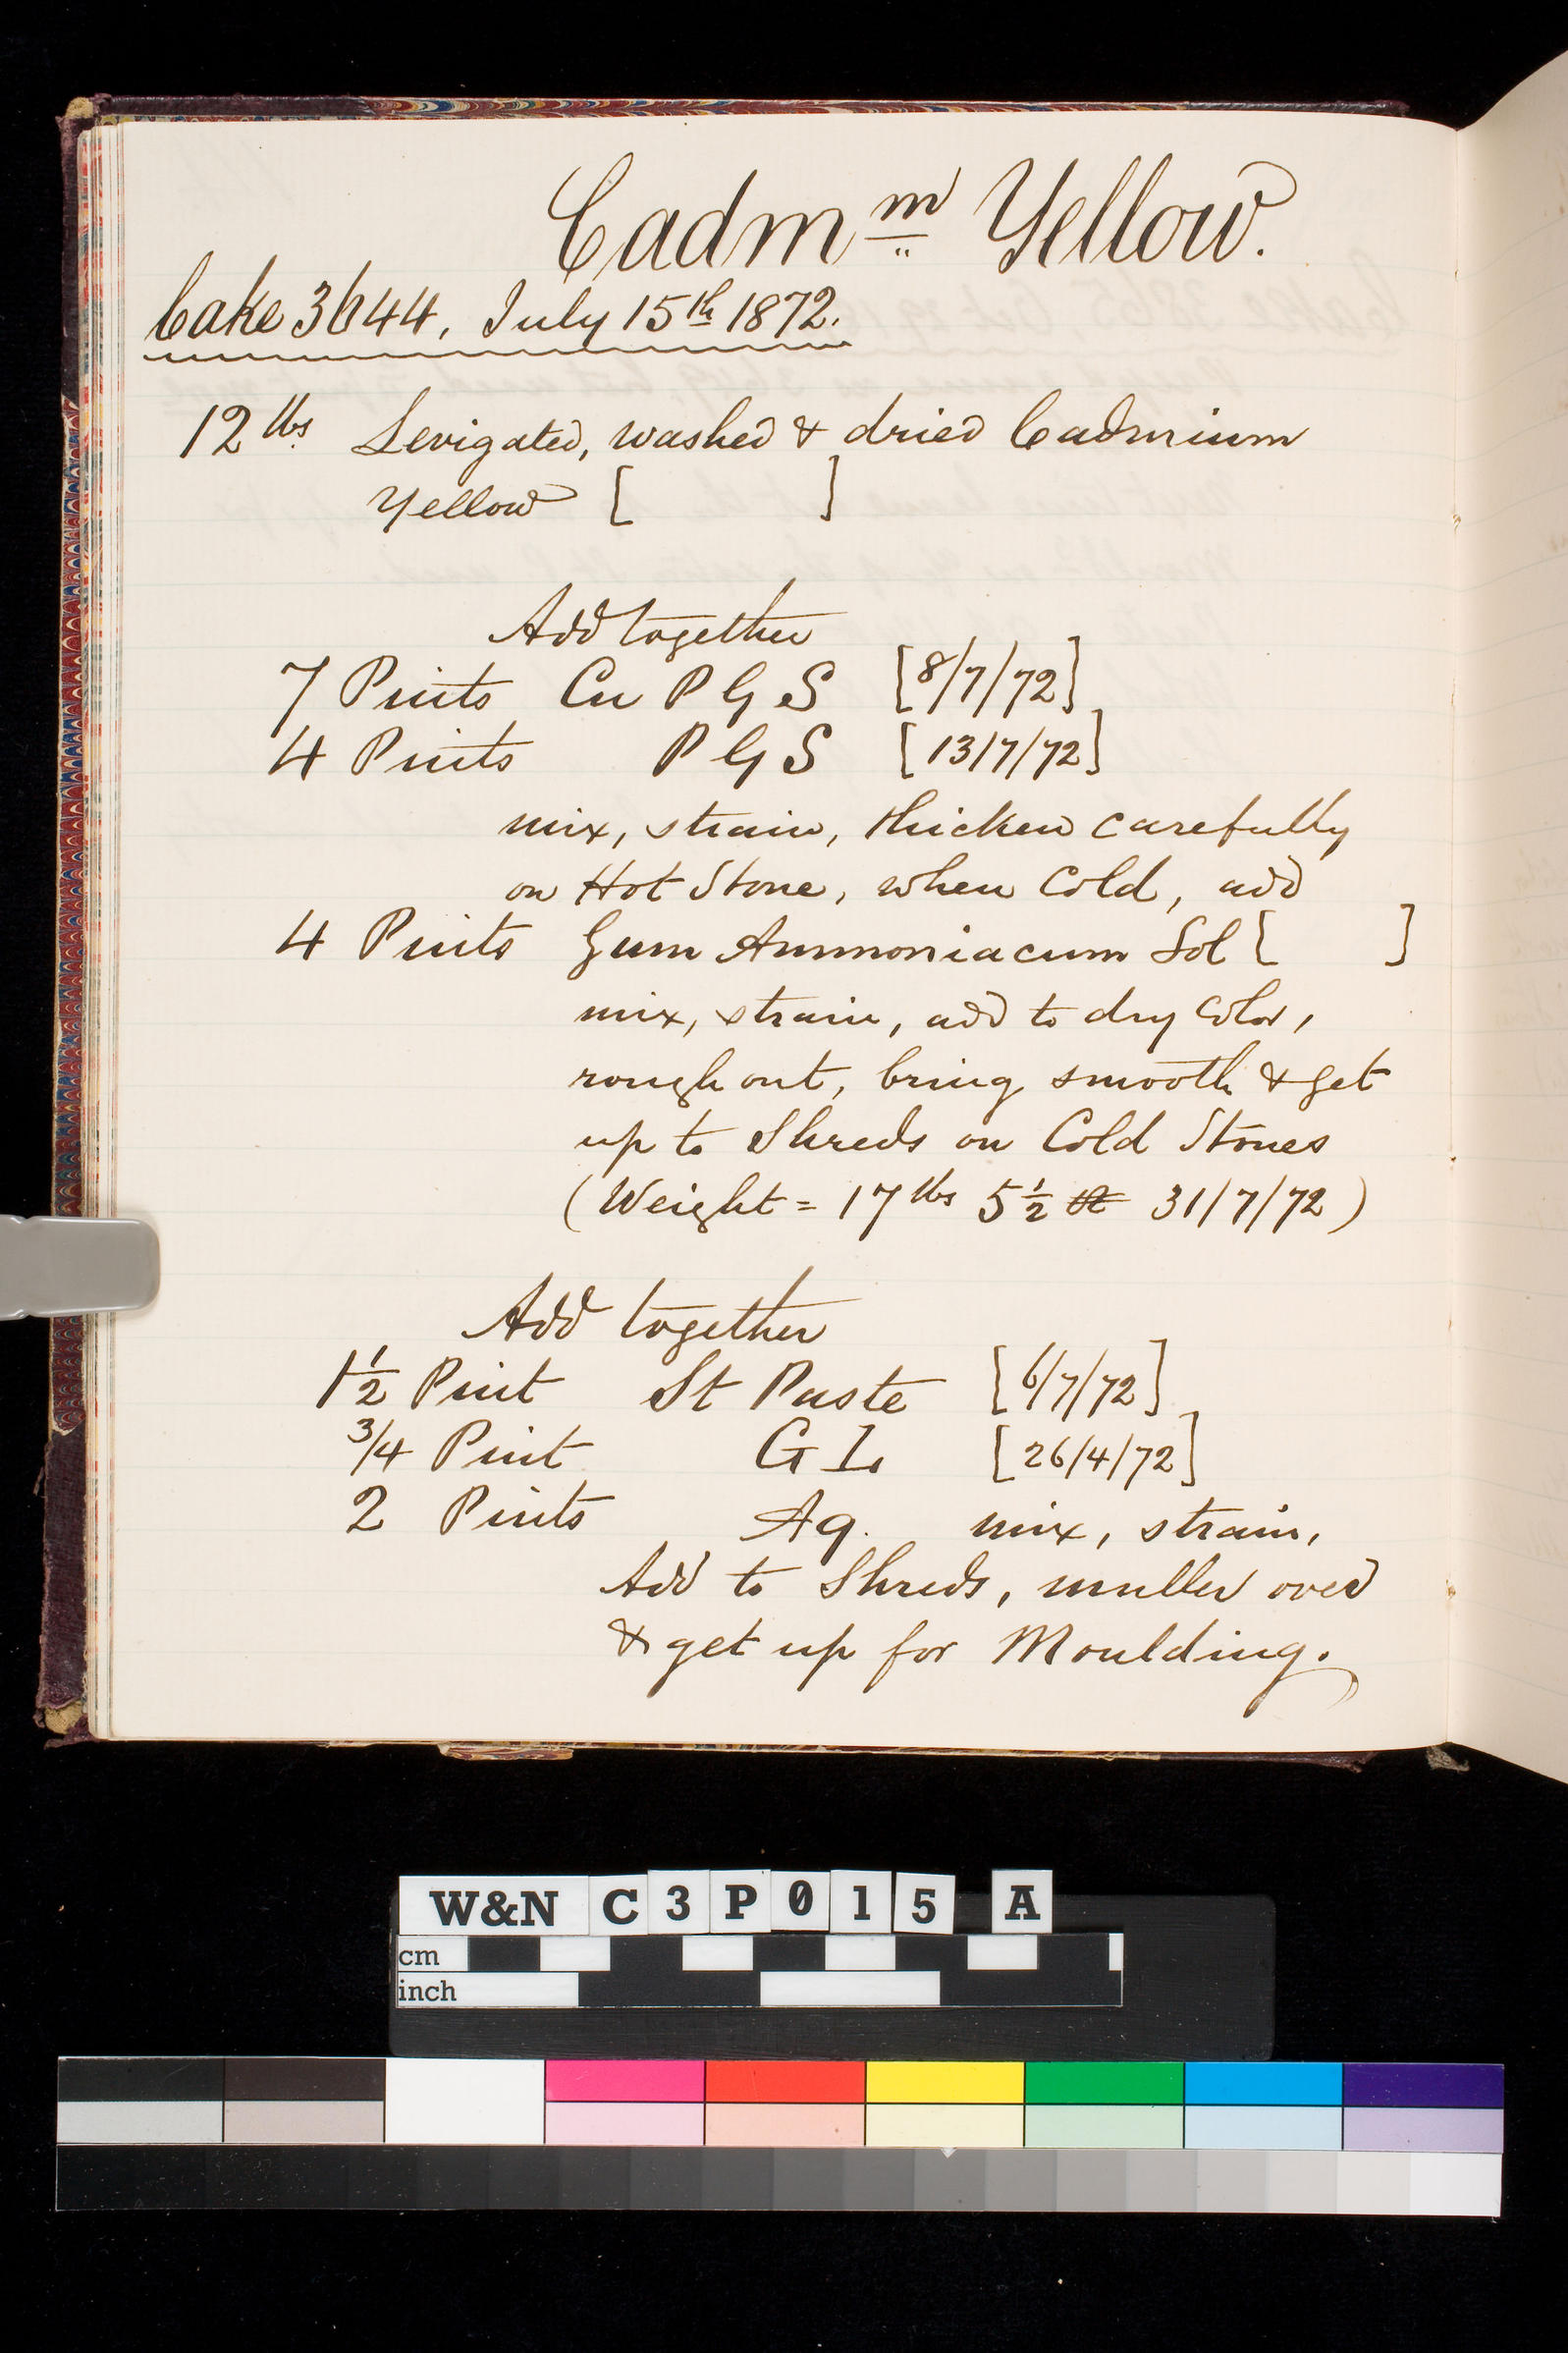 Cadmm Yellow.
Cake 3644, July 15th 1872.
12 lbs Levigated, washed & dried Cadmium
Yellow [ ]
Add together
7 Pints Cu P G S [8/7/72]
4 Pints P G S [13/7/72]
mix, strain, thicken carefully
on Hot Stone, when Cold, add
4 Pints Gum Ammoniacum Sol [ ]
mix, strain, add to dry Color,
rough out, bring smooth & get
up to Shreds on Cold Stones
(Weight = 17 lbs 5½ 31/7/72)
Add together
1½ Pint St Paste [6/7/72]
3/4 Pint G L [26/4/72]
2 Pints Aq. mix, strain,
Add to Shreds, muller over
& get up for Moulding.
W&N C3P015 A
cm
inch